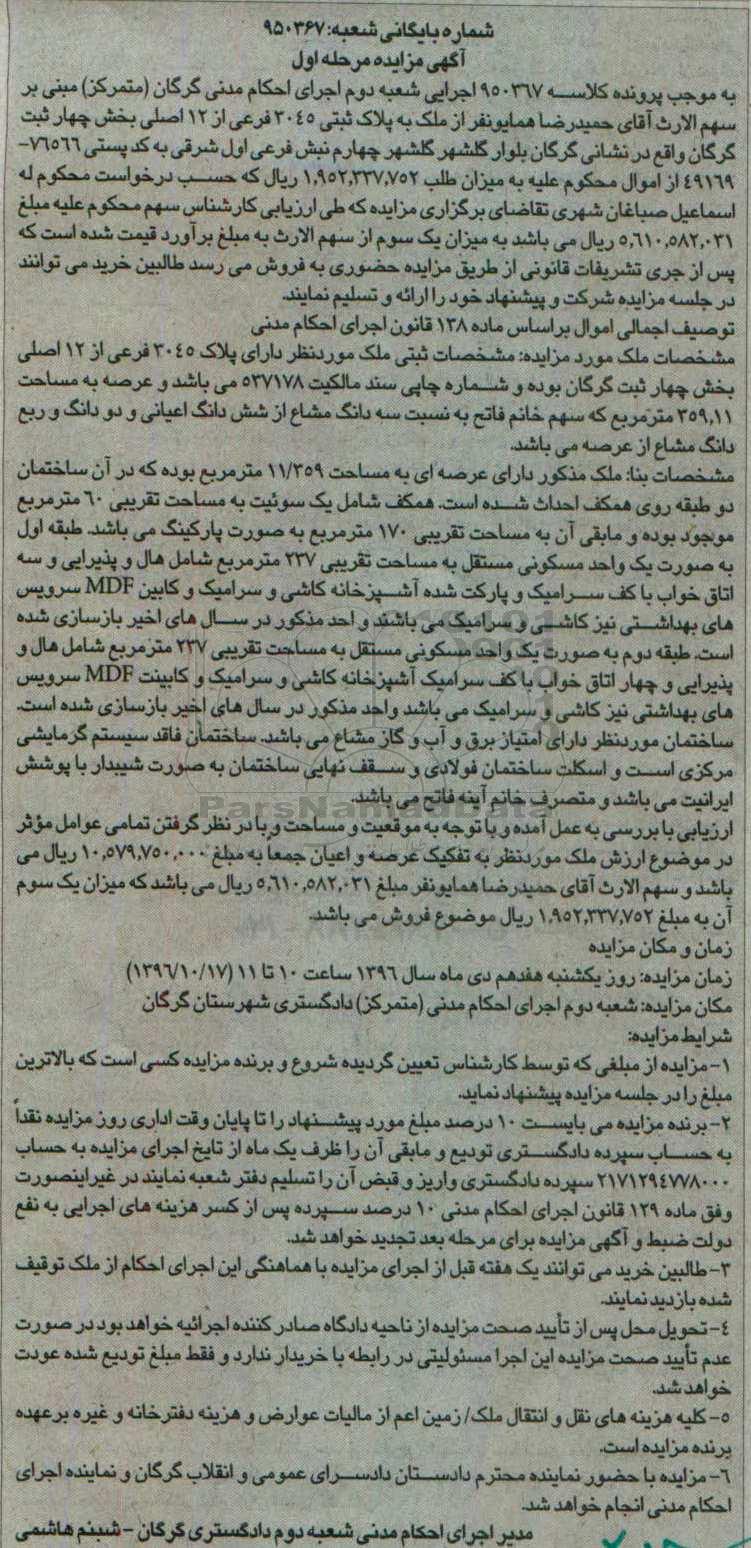 شماره بایگانی شعبه: ۹۵۰۳۶۷
آگهی مزایده مرحله اول
به موجب پرونده کلاسه ۹۵۰۳۶۷ اجرایی شعبه دوم اجرای احکام مدنی گرگان (متمرکز) مبنی بر
سهم الارث آقای حمیدرضا همایونفر از ملک به پلاک ثبتی ۳۰۴۵ فرعی از ۱۲ اصلی بخش چهار ثبت
گرگان واقع در نشانی گرگان بلوار گلشهر گلشهر چهارم نبش فرعی اول شرقی به کد پستی ۷۶۵۶۶-
۴۹۱۶۹ از اموال محکوم علیه به میزان طلب ۱,۹۵۲,۳۳۷,۷۵۲ ریال که حسب درخواست محکوم له
اسماعیل صباغان شهری تقاضای برگزاری مزایده که طی ارزیابی کارشناس سهم محکوم علیه مبلغ
۵,۶۱۰,۵۸۲,۰۳۱ ریال می باشد به میزان یک سوم از سهم الارث به مبلغ برآورد قیمت شده است که
پس از جری تشریفات قانونی از طریق مزایده حضوری به فروش می رسد طالبین خرید می توانند
در جلسه مزایده شرکت و پیشنهاد خود را ارائه و تسلیم نمایند.
توصیف اجمالی اموال براساس ماده ۱۳۸ قانون اجرای احکام مدنی
مشخصات ملک مورد مزایده: مشخصات ثبتی ملک موردنظر دارای پلاک ۳۰۴۵ فرعی از ۱۲ اصلی
بخش چهار ثبت گرگان بوده و شماره چاپی سند مالکیت ۵۳۷۱۷۸ می باشد و عرصه به مساحت
۳۵۹,۱۱ مترمربع که سهم خانم فاتح به نسبت سه دانگ مشاع از شش دانگ اعیانی و دو دانگ و ربع
دانگ مشاع از عرصه می باشد.
مشخصات بنا: ملک مذکور دارای عرصه ای به مساحت ۱۱/۳۵۹ مترمربع بوده که در آن ساختمان
دو طبقه روی همکف احداث شده است. همکف شامل یک سوئیت به مساحت تقریبی ۶۰ مترمربع
موجود بوده و مابقی آن به مساحت تقریبی ۱۷۰ مترمربع به صورت پارکینگ می باشد. طبقه اول
به صورت یک واحد مسکونی مستقل به مساحت تقریبی ۲۳۷ مترمربع شامل هال و پذیرایی و سه
اتاق خواب با کف سرامیک و پارکت شده آشپزخانه کاشی و سرامیک و کابین MDF سرویس
های بهداشتی نیز کاشی و سرامیک می باشند و احد مذکور در سال های اخیر بازسازی شده
است. طبقه دوم به صورت یک واحد مسکونی مستقل به مساحت تقریبی ۲۳۷ مترمربع شامل هال و
پذیرایی و چهار اتاق خواب با کف سرامیک آشپزخانه کاشی و سرامیک و کابینت MDF سرویس
های بهداشتی نیز کاشی و سرامیک می باشد واحد مذکور در سال های اخیر بازسازی شده است.
ساختمان موردنظر دارای امتیاز برق و آب و گاز مشاع می باشد. ساختمان فاقد سیستم گرمایشی
مرکزی است و اسکلت ساختمان فولادی و سقف نهایی ساختمان به صورت شیبدار با پوشش
ایرانیت می باشد و متصرف خانم آینه فاتح می باشد.
ParsNamadData
ارزیابی با بررسی به عمل آمده و با توجه به موقعیت و مساحت و با در نظر گرفتن تمامی عوامل مؤثر
در موضوع ارزش ملک موردنظر به تفکیک عرصه و اعیان جمعا به مبلغ ۱۰,۵۷۹,۷۵۰,۰۰۰ ریال می
باشد و سهم الارث آقای حمیدرضا همایونفر مبلغ ۵,۶۱۰,۵۸۲,۰۳۱ ریال می باشد که میزان یک سوم
آن به مبلغ ۱,۹۵۲,۳۳۷,۷۵۲ ریال موضوع فروش می باشد.
زمان و مکان مزایده
زمان مزایده: روز یکشنبه هفدهم دی ماه سال ۱۳۹۶ ساعت ۱۰ تا ۱۱ (۱۳۹۶/۱۰/۱۷)
مکان مزایده: شعبه دوم اجرای احکام مدنی (متمرکز) دادگستری شهرستان گرگان
شرایط مزایده:
۱- مزایده از مبلغی که توسط کارشناس تعیین گردیده شروع و برنده مزایده کسی است که بالاترین
مبلغ را در جلسه مزایده پیشنهاد نماید.
۲- برنده مزایده می بایست ۱۰ درصد مبلغ مورد پیشنهاد را تا پایان وقت اداری روز مزایده نقداً
به حساب سپرده دادگستری تودیع و مابقی آن را ظرف یک ماه از تایخ اجرای مزایده به حساب
۲۱۷۱۲۹۴۷۷۸۰۰۰ سپرده دادگستری واریز و قبض آن را تسلیم دفتر شعبه نمایند در غیراینصورت
وفق ماده ۱۲۹ قانون اجرای احکام مدنی ۱۰ درصد سپرده پس از کسر هزینه های اجرایی به نفع
دولت ضبط و آگهی مزایده برای مرحله بعد تجدید خواهد شد.
۳- طالبین خرید می توانند یک هفته قبل از اجرای مزایده با هماهنگی این اجرای احکام از ملک توقیف
شده بازدید نمایند.
۴- تحویل محل پس از تأیید صحت مزایده از ناحیه دادگاه صادر کننده اجرائیه خواهد بود در صورت
عدم تأیید صحت مزایده این اجرا مسئولیتی در رابطه با خریدار ندارد و فقط مبلغ تودیع شده عودت
خواهد شد.
۵- کلیه هزینه های نقل و انتقال ملک/ زمین اعم از مالیات عوارض و هزینه دفترخانه و غیره برعهده
برنده مزایده است.
۶- مزایده با حضور نماینده محترم دادستان دادسرای عمومی و انقلاب گرگان و نماینده اجرای
احکام مدنی انجام خواهد شد.
مدیر اجرای احکام مدنی شعبه دوم دادگستری گرگان - شبنم هاشمی